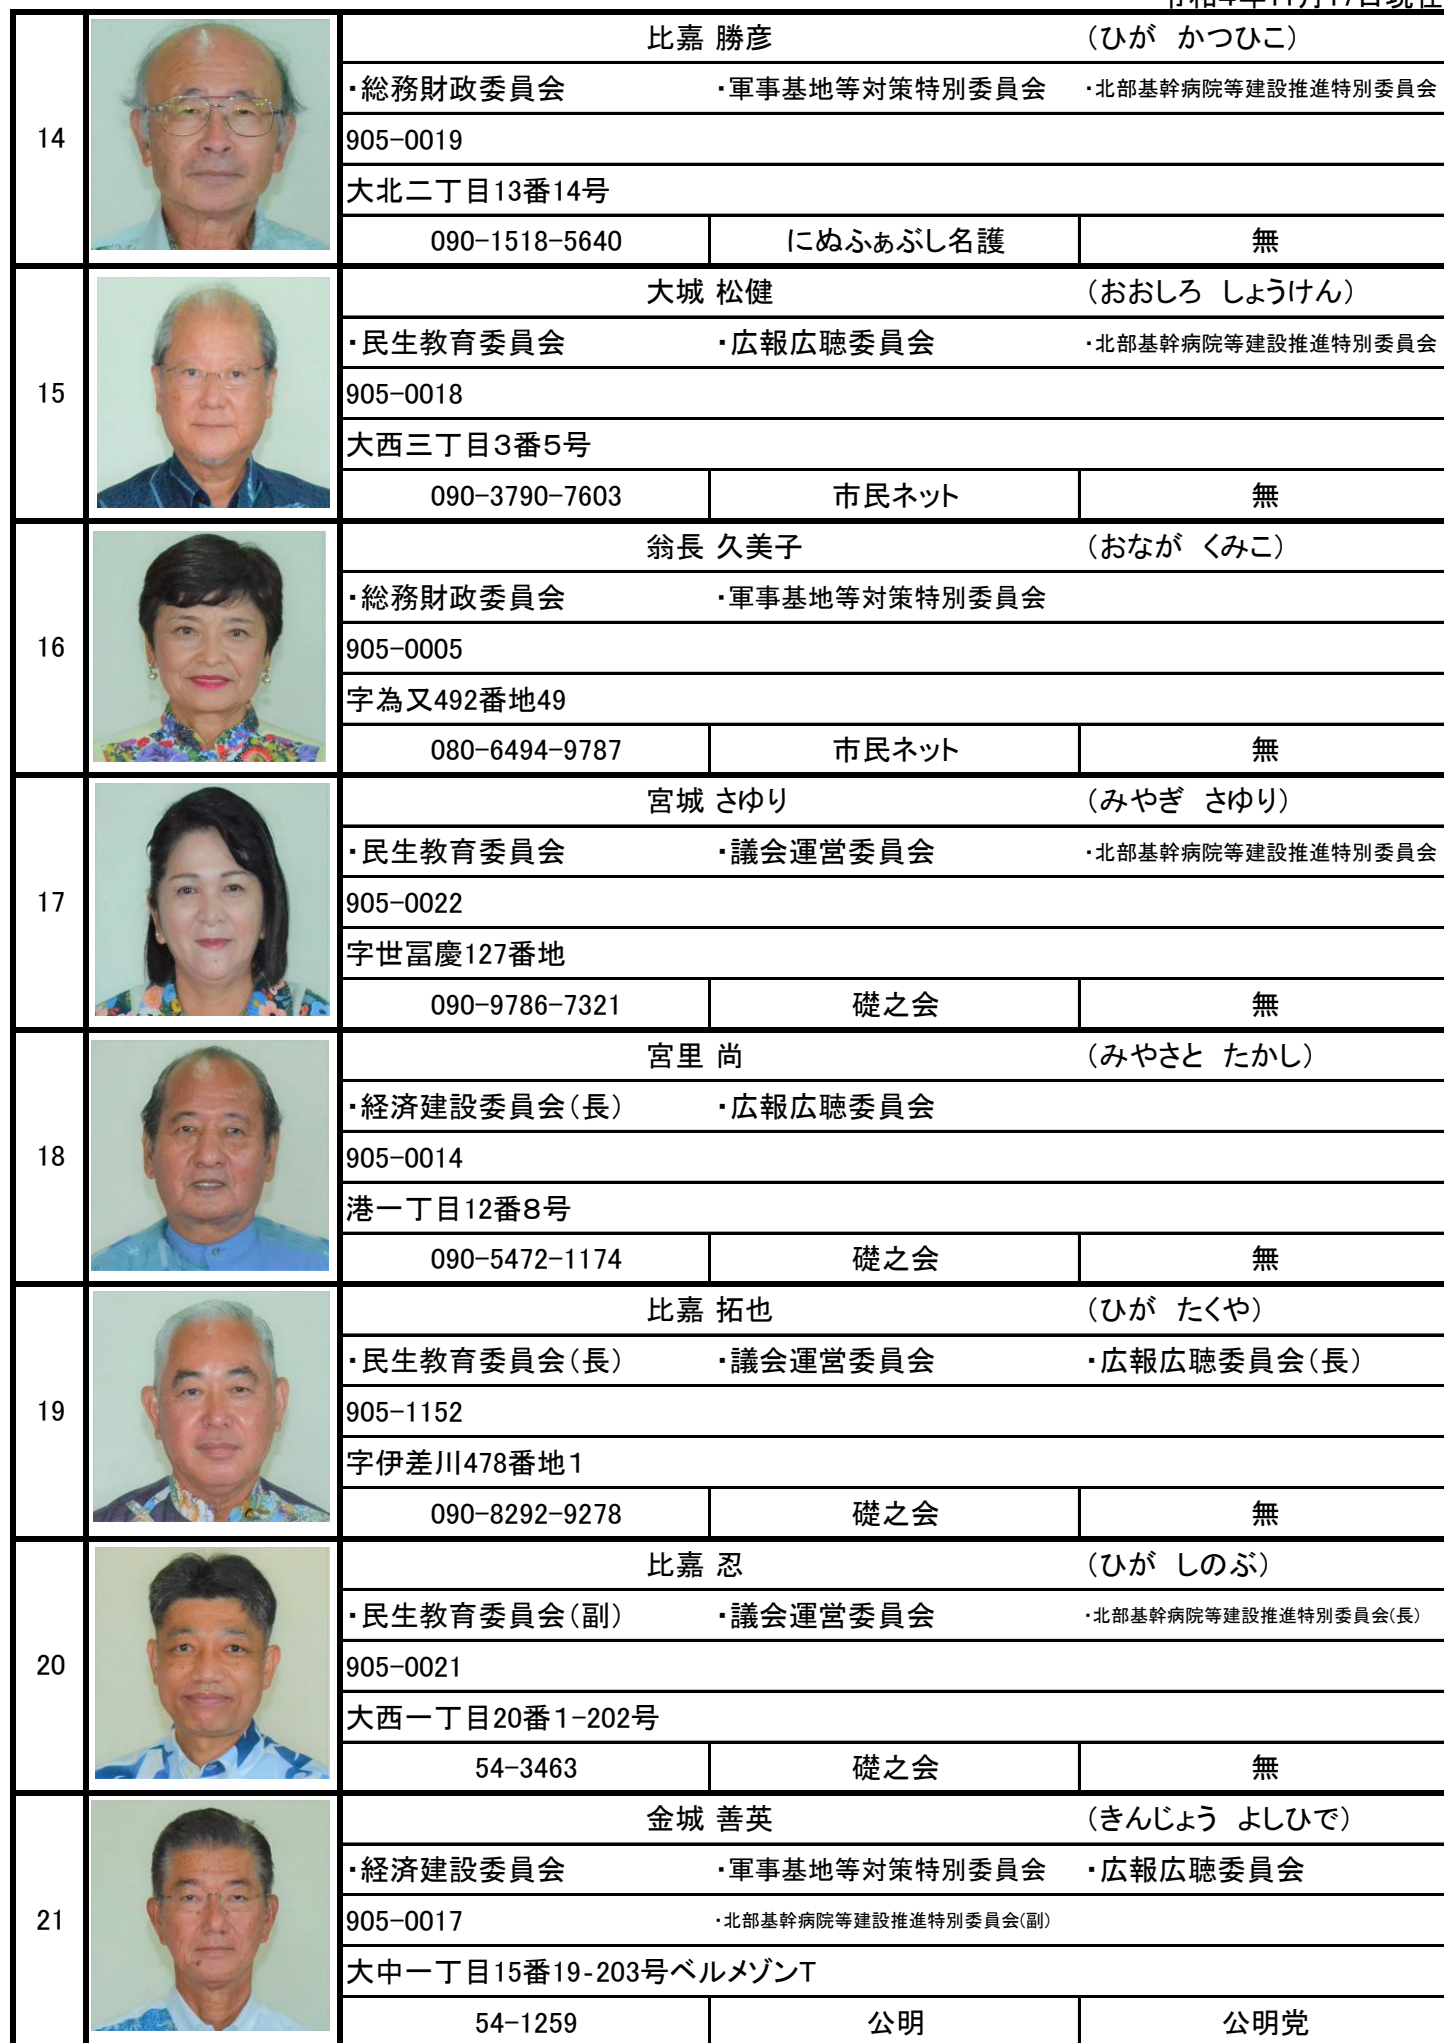 令和4年11月17日現在
14
比嘉 勝彦 （ひが かつひこ）
・総務財政委員会 ・軍事基地等対策特別委員会 ・北部基幹病院等建設推進特別委員会
905-0019
大北二丁目13番14号
090-1518-5640 にぬふぁぶし名護 無
15
大城 松健 （おおしろ しょうけん）
・民生教育委員会 ・広報広聴委員会 ・北部基幹病院等建設推進特別委員会
905-0018
大西三丁目３番５号
090-3790-7603 市民ネット 無
16
翁長 久美子 （おなが くみこ）
・総務財政委員会 ・軍事基地等対策特別委員会
905-0005
字為又492番地49
080-6494-9787 市民ネット 無
17
宮城 さゆり （みやぎ さゆり）
・民生教育委員会 ・議会運営委員会 ・北部基幹病院等建設推進特別委員会
905-0022
字世冨慶127番地
090-9786-7321 礎之会 無
18
宮里 尚 （みやさと たかし）
・経済建設委員会（長） ・広報広聴委員会
905-0014
港一丁目12番８号
090-5472-1174 礎之会 無
19
比嘉 拓也 （ひが たくや）
・民生教育委員会（長） ・議会運営委員会 ・広報広聴委員会（長）
905-1152
字伊差川478番地１
090-8292-9278 礎之会 無
20
比嘉 忍 （ひが しのぶ）
・民生教育委員会（副） ・議会運営委員会 ・北部基幹病院等建設推進特別委員会(長)
905-0021
大西一丁目20番１-202号
54-3463 礎之会 無
21
金城 善英 （きんじょう よしひで）
・経済建設委員会 ・軍事基地等対策特別委員会 ・広報広聴委員会
905-0017 ・北部基幹病院等建設推進特別委員会(副)
大中一丁目15番19-203号ベルメゾンT
54-1259 公明 公明党